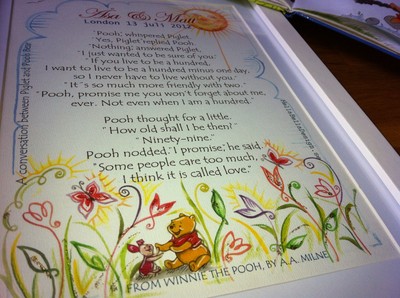 Asa & Matt
London 13 July 2012
"Pooh," whispered Piglet.
"Yes, Piglet," replied Pooh.
"Nothing," answered Piglet,
"I just wanted to be sure of you."
"If you live to be a hundred,
I want to live to be a hundred minus one day,
so I never have to live without you."
"It's so much more friendly with two."
"Pooh, promise me you won't forget about me,
ever. Not even when I am a hundred."
Pooh thought for a little.
"How old shall I be then?"
"Ninety-nine."
Pooh nodded. "I promise," he said.
"Some people care too much,
I think it is called love."
FROM WINNIE THE POOH, BY A.A. MILNE
A conversation between Piglet and Pooh Bear